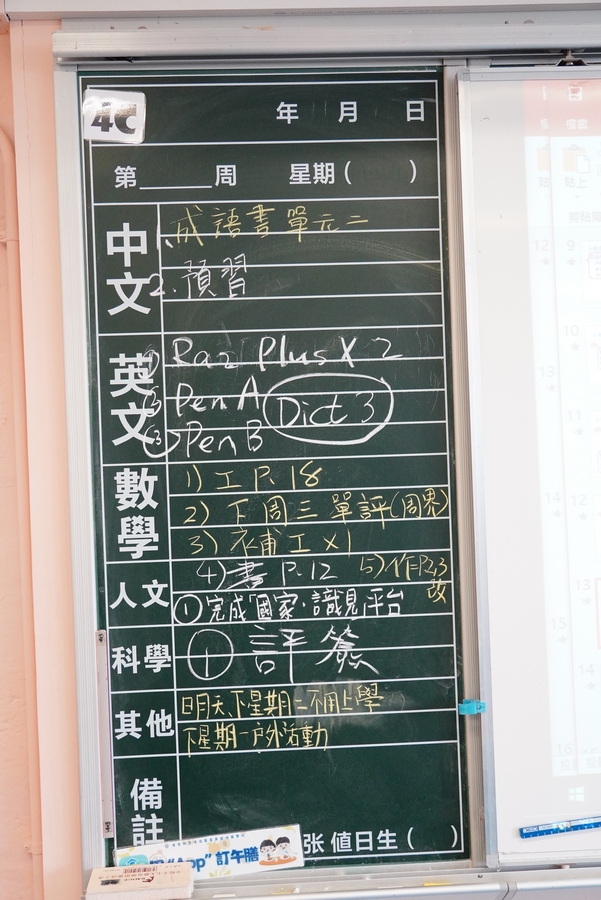 4C
年 月 日
第 周 星期( )
中文
1. 成語書單元二
2. 預習
英文
(1) Raz Plus X 2
(2) Pen A
Dict 3
(3) Pen B
數學
1) 工 P. 18
2) 下周三單評(周界)
3) 補工 x 1
4) 書 P. 12 5) 作P2,3
改
人文
① 完成「國家·識見」平台
科學
① 評簽
其他
明天、下星期二不用上學
下星期一戶外活動
備註
"App" 訂午膳
值日生( )